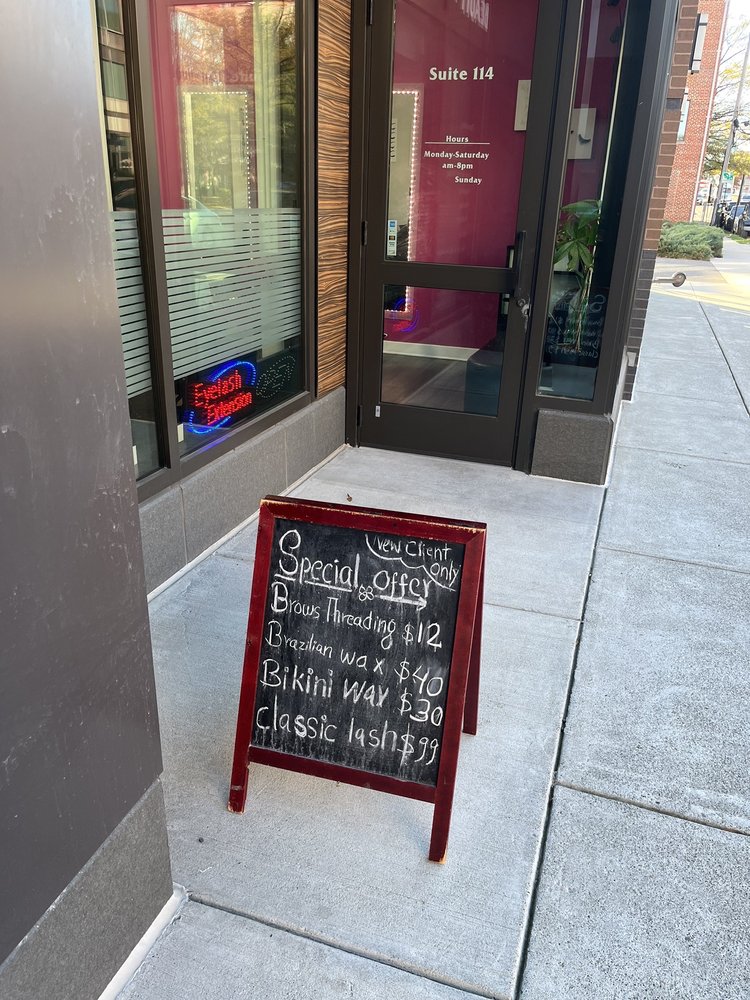 Suite 114
Hours
Monday-Saturday
am-8pm
Sunday
Eyelash
Extension
New Client
Only
Special Offer
Brows Threading $12
Brazilian wax $40
Bikini wax $30
Classic lash $99